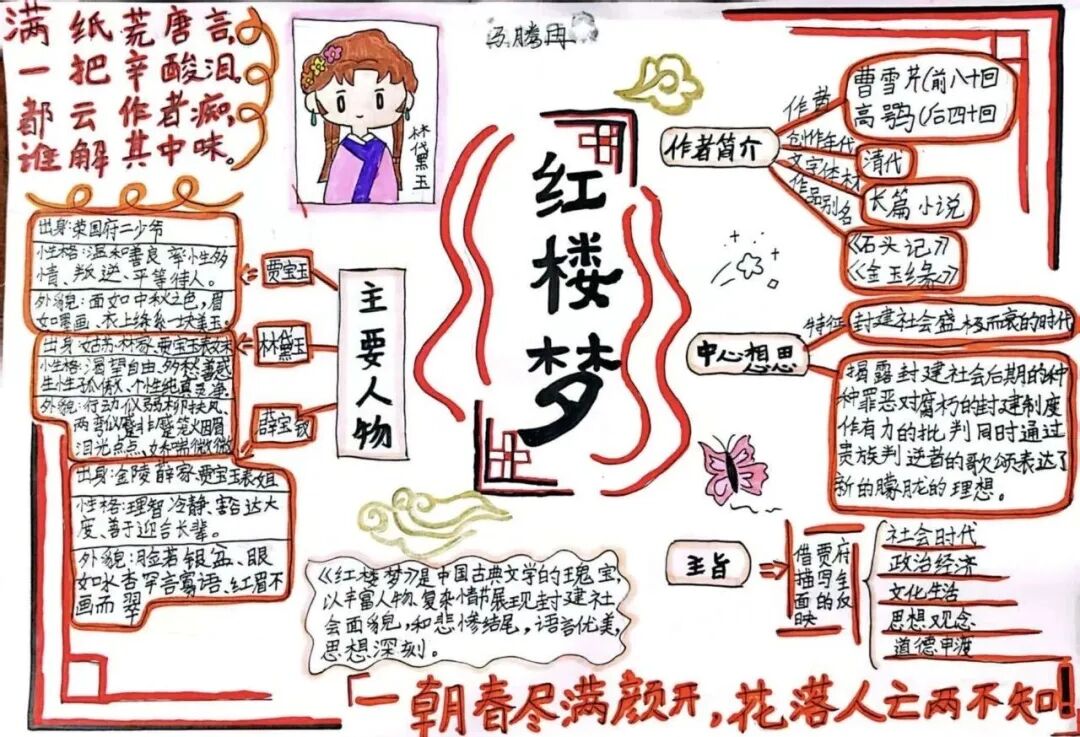 满纸荒唐言，
一把辛酸泪。
都云作者痴，
谁解其中味。
林黛玉
红楼梦
作者简介
作者
曹雪芹(前八十回
高鹗(后四十回
创作年代
清代
文字体材
长篇小说
作品别名
《石头记》
《金玉缘》
主要人物
贾宝玉
出身:荣国府二少爷
性格:温和善良、率性多
情、叛逆、平等待人。
外貌:面如中秋之色,眉
如墨画、衣上绦系一块美玉。
林黛玉
出身:姑苏林家、贾宝玉表妹
性格:渴望自由、多愁善感
生性孤傲、个性纯真灵净。
外貌:行动似弱柳扶风、
两弯似蹙非蹙笼烟眉
泪光点点、娇喘微微
薛宝钗
出身:金陵薛家、贾宝玉表姐
性格:理智冷静、豁达大
度、善于迎合长辈。
外貌:脸若银盆、眼
如水杏罕言寡语、红眉不
画而翠
中心思想
特征
封建社会盛极而衰的时代
揭露封建社会后期的种
种罪恶对腐朽的封建制度
作有力的批判同时通过
贵族判逆者的歌颂表达了
新的朦胧的理想。
主旨
借贾府
描写全
面的反
映
社会时代
政治经济
文化生活
思想观念
道德申渡
《红楼梦》是中国古典文学的瑰宝,
以丰富人物、复杂情节展现封建社
会面貌,和悲惨结尾,语言优美,
思想深刻。
「一朝春尽满颜开,花落人亡两不知!